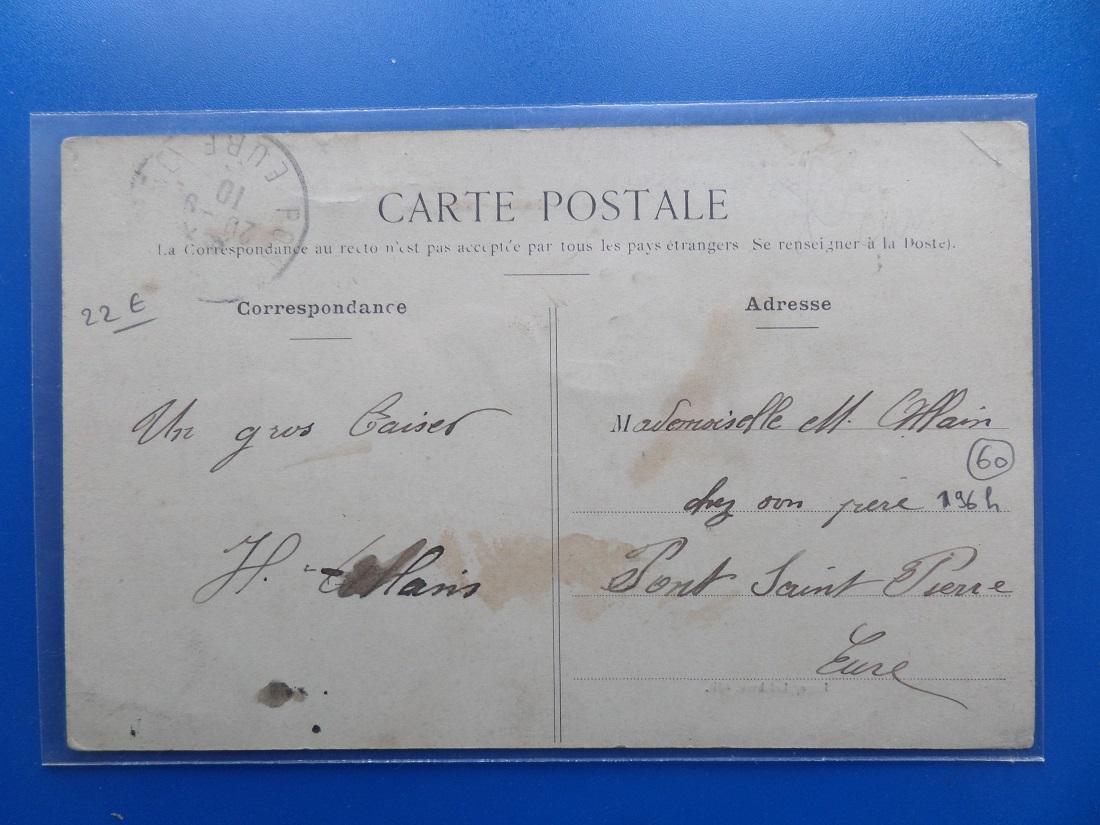 CARTE POSTALE
(La Correspondance au recto n'est pas acceptée par tous les pays étrangers Se renseigner à la Poste).
EURE
20 - 8
10
22 €
Correspondance
Un gros Baiser
H. Allain
Adresse
Mademoiselle M. Allain
60
chez son père 196h
Pont Saint Pierre
Eure